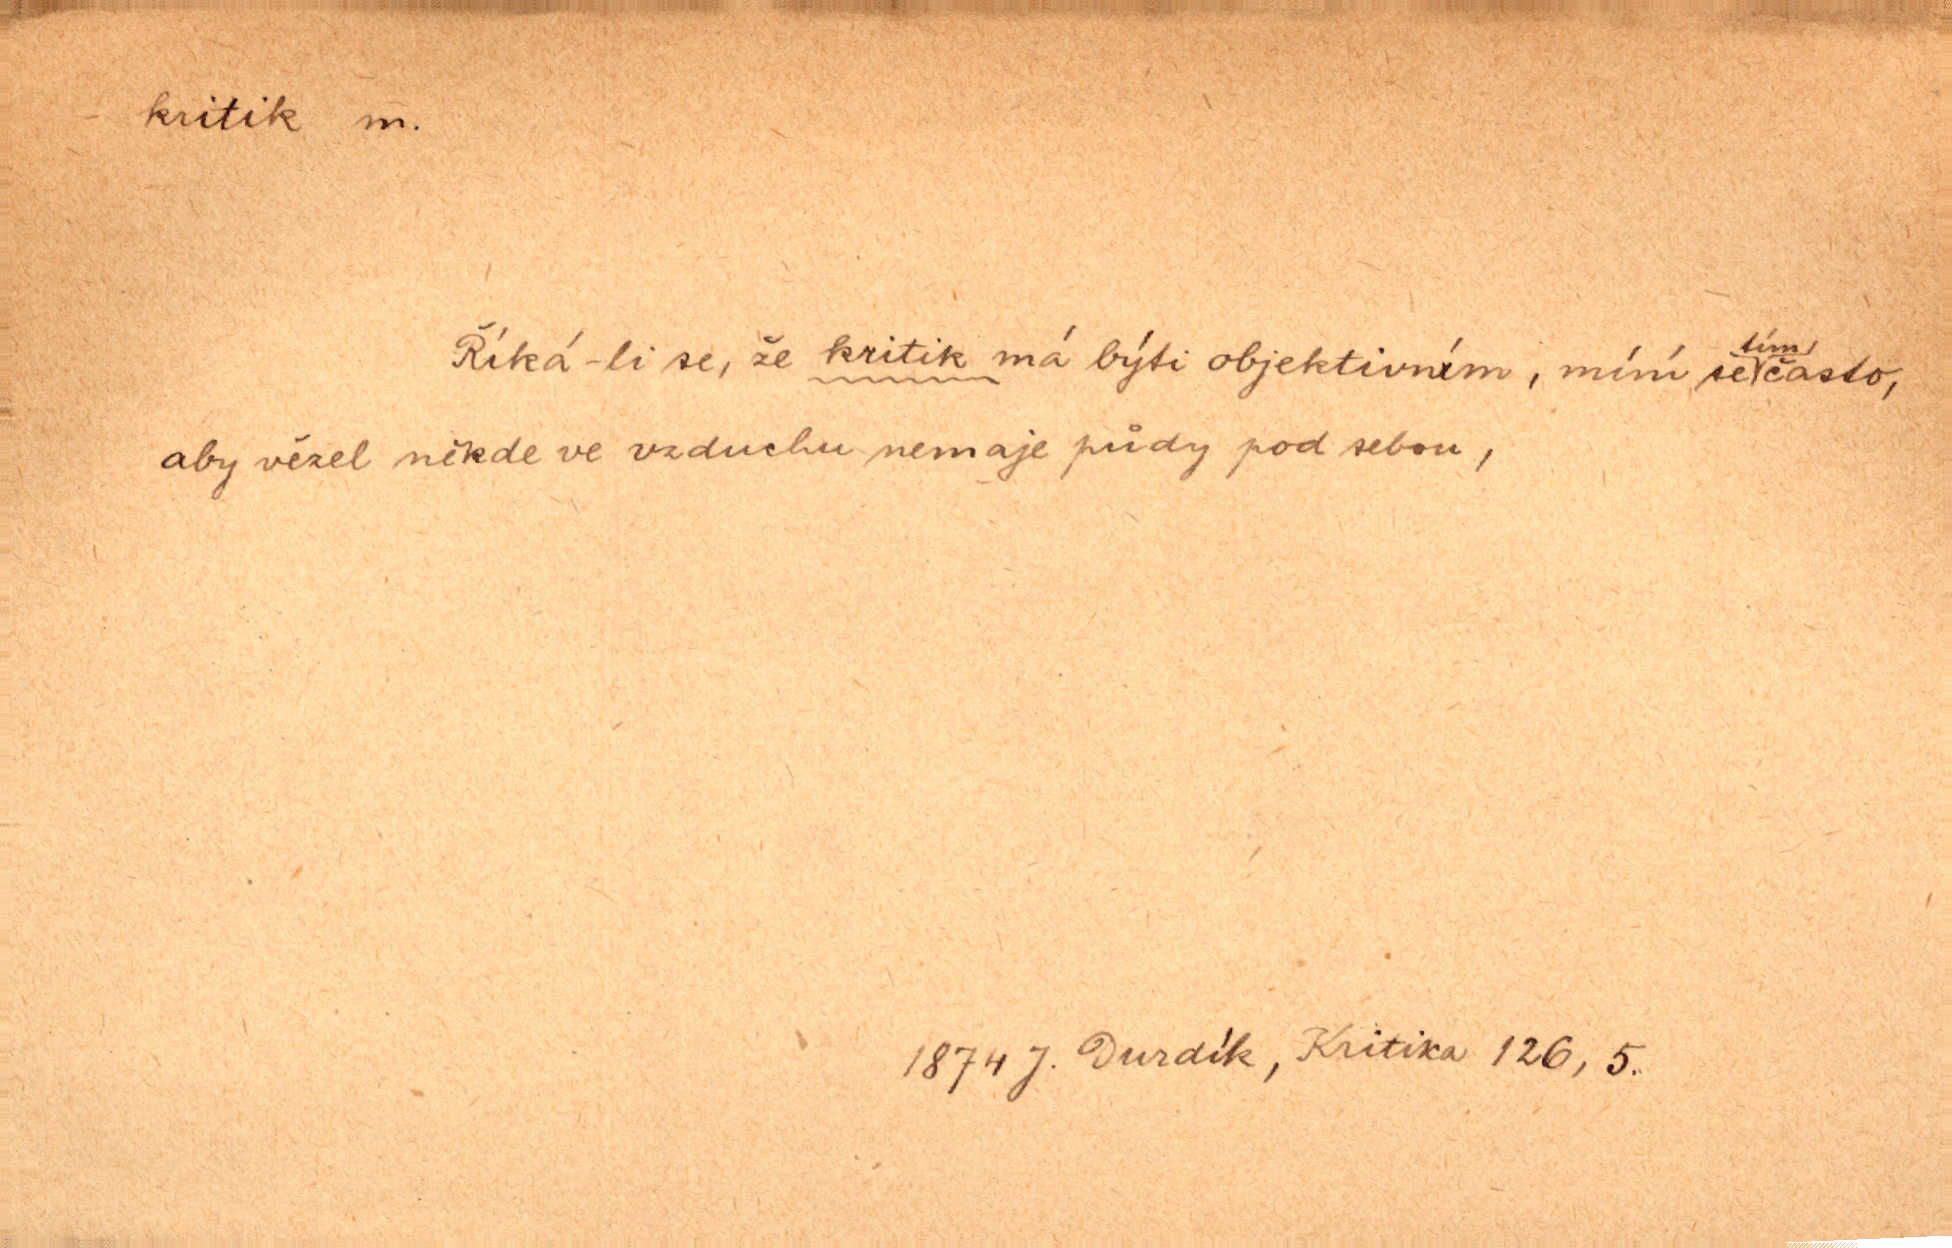 kritik m.
Říká-li se, že kritik má býti objektivním, míní se tím často,
aby vězel někde ve vzduchu nemaje půdy pod sebou,
1874 J. Durdík, Kritika 126, 5.